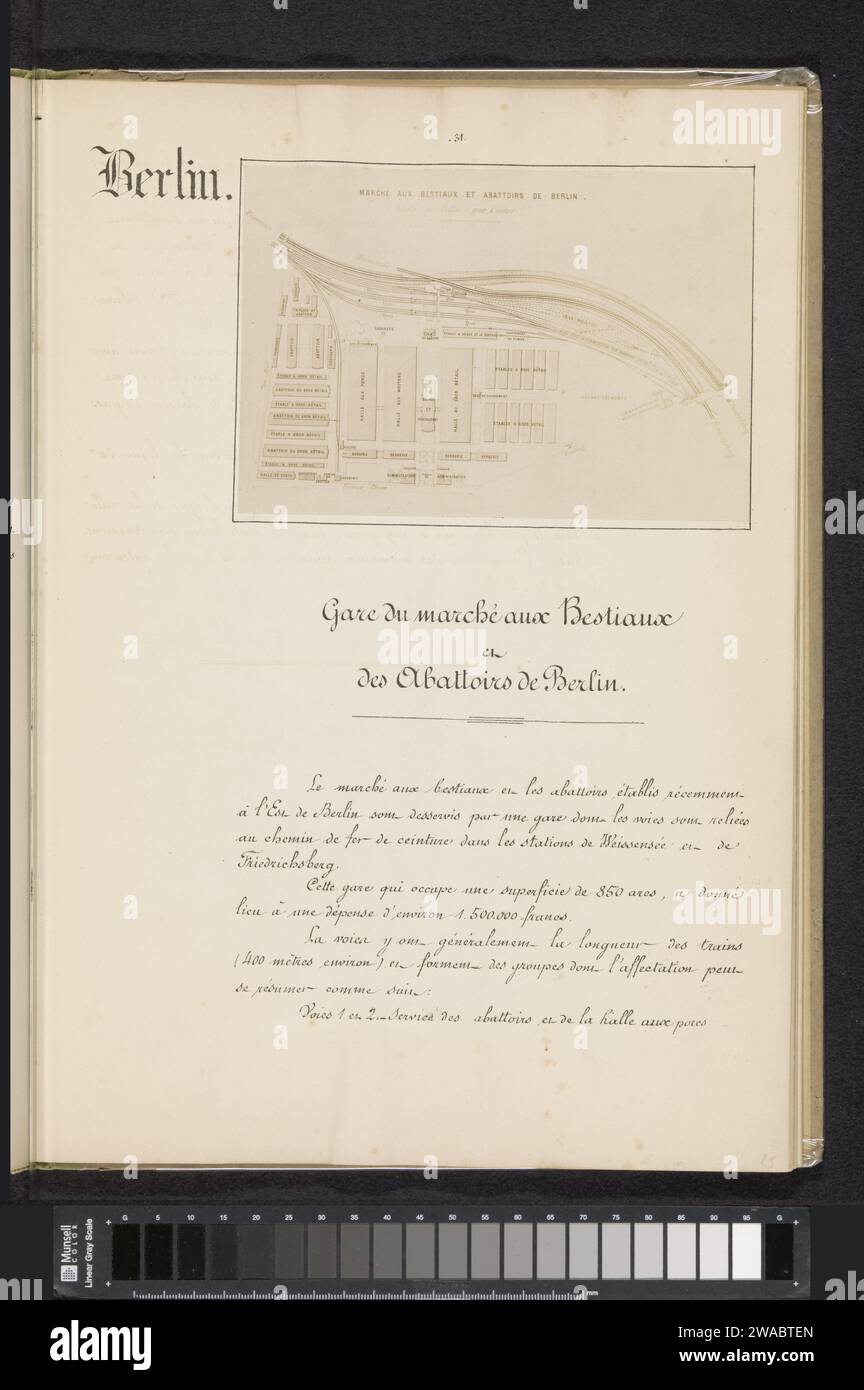 - 31 -
Berlin.
MARCHÉ AUX BESTIAUX ET ABATTOIRS DE BERLIN.
pour 1 mètre
HALLE AUX PORCS
HALLE AUX MOUTONS
HALLE AU GROS BÉTAIL
ETABLES A GROS BÉTAIL
ETABLES A GROS BÉTAIL
ABATTOIR
ABATTOIR
ETABLE A GROS BÉTAIL
ABATTOIR DU GROS BÉTAIL
ETABLE A GROS BÉTAIL
ABATTOIR DU GROS BÉTAIL
ETABLE A GROS BÉTAIL
ABATTOIR DU GROS BÉTAIL
ETABLE A GROS BÉTAIL
HALLE DE VENTE
BERGERIE
BERGERIE
BERGERIE
BERGERIE
ADMINISTRATION
ADMINISTRATION
Gare du marché aux Bestiaux
et
des Abattoirs de Berlin.
Le marché aux bestiaux et les abattoirs, établis récemment
à l'Est de Berlin sont desservis par une gare dont les voies sont reliées
au chemin de fer de ceinture dans les stations de Weissensée et de
Friedrichsberg.
Cette gare qui occupe une superficie de 850 ares, a donné
lieu à une dépense d'environ 1.500.000 francs.
La voies y ont généralement la longueur des trains
(400 mètres environ) et forment des groupes dont l'affectation peut
se résumer comme suit:
Voies 1 et 2._ Service des abattoirs et de la halle aux porcs
25
Munsell
COLOR
Linear Gray Scale
G 5 10 15 20 25 30 35 40 45 50 55 60 65 70 75 80 85 90 95 G
mm
alamy
alamy
alamy
alamy
Image ID: 2WABTEN
www.alamy.com